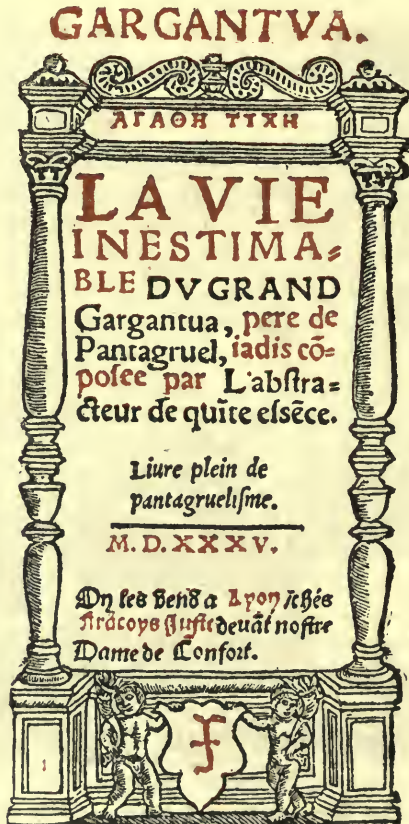 GARGANTVA.
ΑΓΑΘΗ ΤΥΧΗ
LA VIE
INESTIMA⸗
BLE DVGRAND
Gargantua, pere de
Pantagruel, iadis cõ⸗
poſee par L'abſtra⸗
cteur de quĩte eſsẽce.
Liure plein de
pantagrueliſme.
M. D. XXXV.
On les vend a Lyon / chés
Frãcoys Juſte devãt noſtre
Dame de Confort.
F